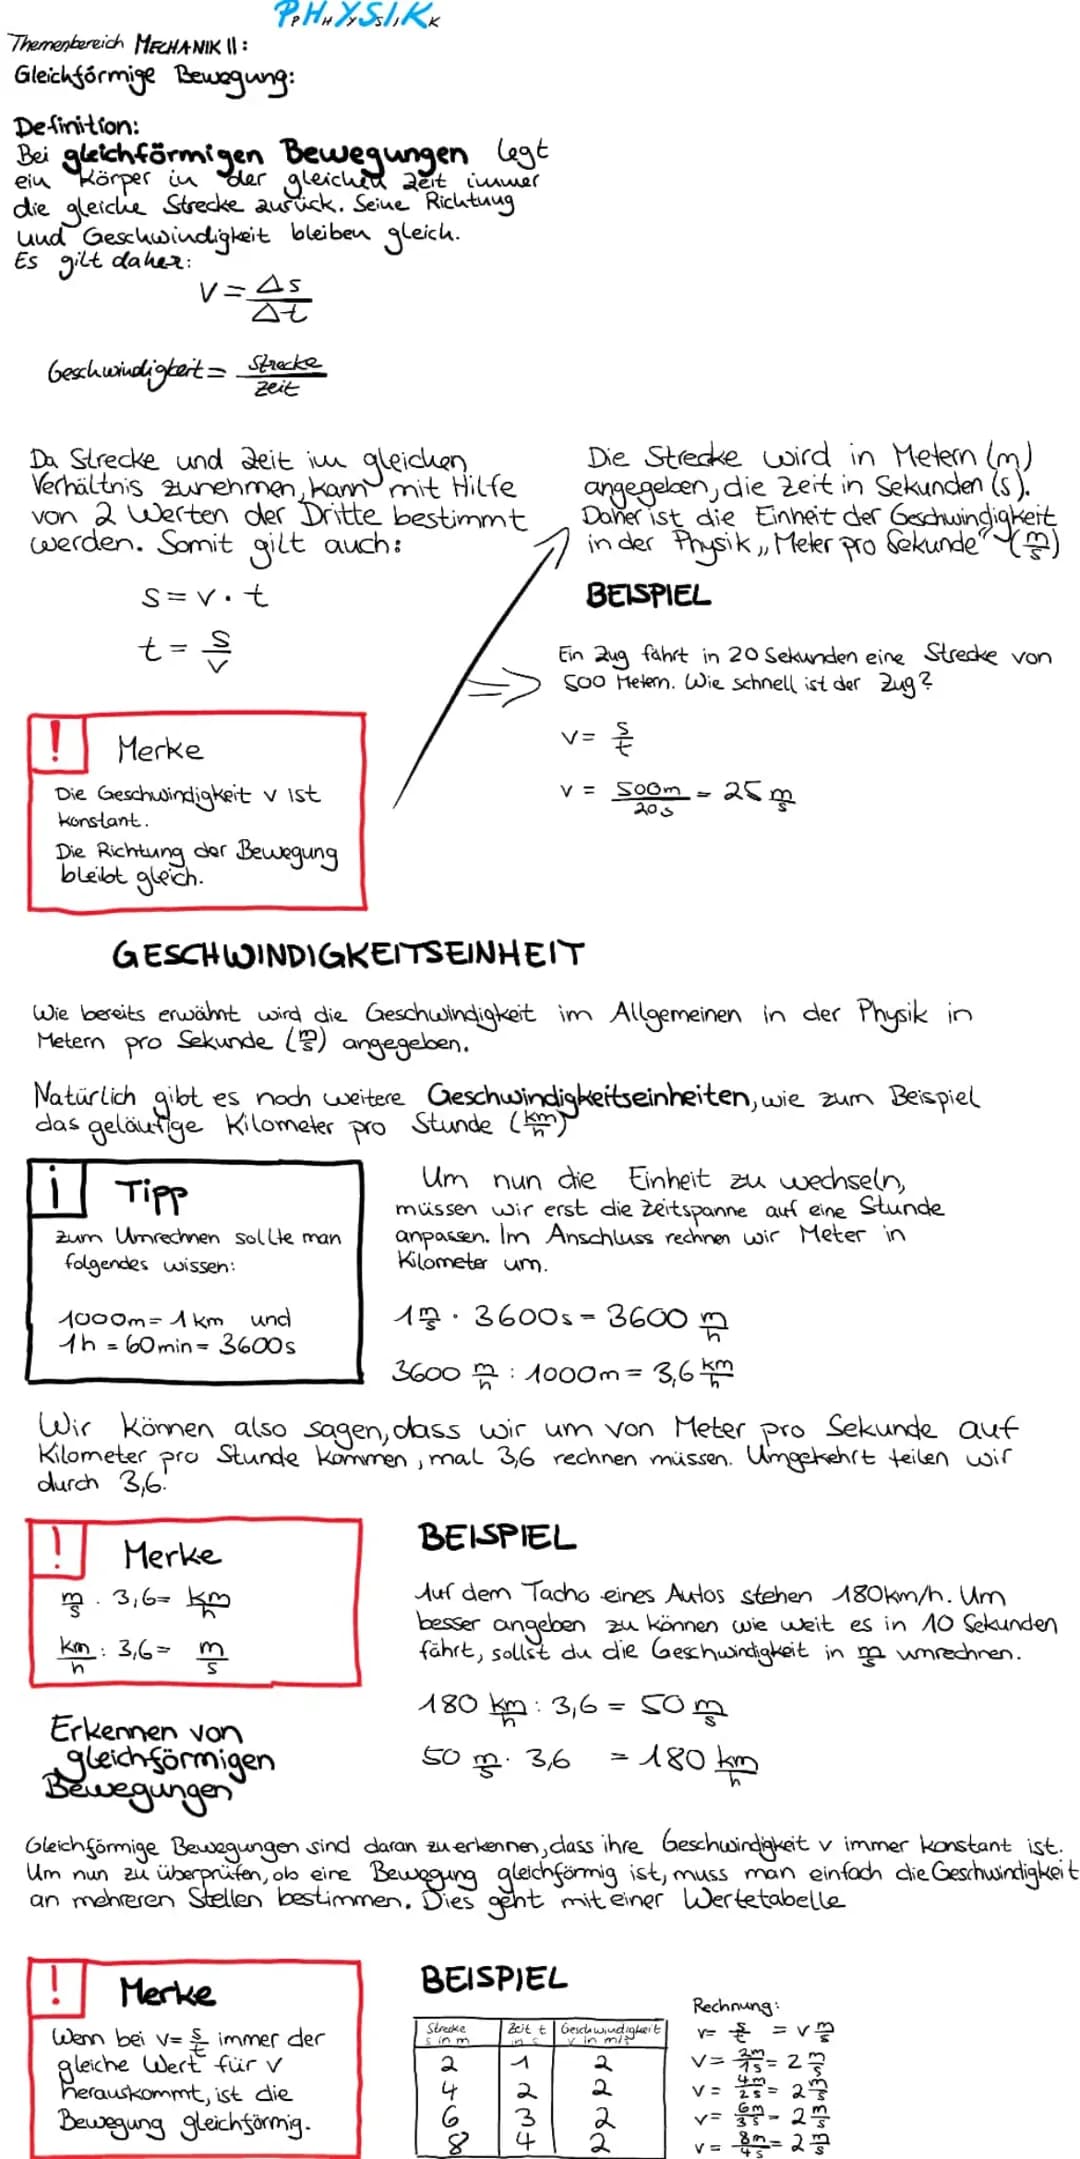 PPHHYYSSIIKK
Themenbereich MECHANIK II:
Gleichförmige Bewegung:
Definition:
Bei gleichförmigen Bewegungen legt
ein Körper in der gleichen Zeit immer
die gleiche Strecke zurück. Seine Richtung
und Geschwindigkeit bleiben gleich.
Es gilt daher:
V = Δs/Δt
Geschwindigkeit = Strecke/Zeit
Da Strecke und Zeit im gleichen
Verhältnis zunehmen, kann mit Hilfe
von 2 Werten der Dritte bestimmt
werden. Somit gilt auch:
S = v · t
t = s/v
! Merke
Die Geschwindigkeit v ist
konstant.
Die Richtung der Bewegung
bleibt gleich.
Die Strecke wird in Metern (m)
angegeben, die Zeit in Sekunden (s).
Daher ist die Einheit der Geschwindigkeit
in der Physik „Meter pro Sekunde" (m/s)
BEISPIEL
Ein Zug fährt in 20 Sekunden eine Strecke von
500 Metern. Wie schnell ist der Zug?
v = s/t
v = 500m/20s = 25 m/s
GESCHWINDIGKEITSEINHEIT
Wie bereits erwähnt wird die Geschwindigkeit im Allgemeinen in der Physik in
Metern pro Sekunde (m/s) angegeben.
Natürlich gibt es noch weitere Geschwindigkeitseinheiten, wie zum Beispiel
das geläufige Kilometer pro Stunde (km/h)
i Tipp
Zum Umrechnen sollte man
folgendes wissen:
1000m = 1km und
1h = 60min = 3600s
Um nun die Einheit zu wechseln,
müssen wir erst die Zeitspanne auf eine Stunde
anpassen. Im Anschluss rechnen wir Meter in
Kilometer um.
1 m/s · 3600s = 3600 m/h
3600 m/h : 1000m = 3,6 km/h
Wir können also sagen, dass wir um von Meter pro Sekunde auf
Kilometer pro Stunde kommen, mal 3,6 rechnen müssen. Umgekehrt teilen wir
durch 3,6.
! Merke
m/s · 3,6 = km/h
km/h : 3,6 = m/s
BEISPIEL
Auf dem Tacho eines Autos stehen 180km/h. Um
besser angeben zu können wie weit es in 10 Sekunden
fährt, sollst du die Geschwindigkeit in m/s umrechnen.
180 km/h : 3,6 = 50 m/s
50 m/s · 3,6 = 180 km/h
Erkennen von
gleichförmigen
Bewegungen
Gleichförmige Bewegungen sind daran zu erkennen, dass ihre Geschwindigkeit v immer konstant ist.
Um nun zu überprüfen, ob eine Bewegung gleichförmig ist, muss man einfach die Geschwindigkeit
an mehreren Stellen bestimmen. Dies geht mit einer Wertetabelle
! Merke
Wenn bei v = s/t immer der
gleiche Wert für v
herauskommt, ist die
Bewegung gleichförmig.
BEISPIEL
Strecke s in m | Zeit t in s | Geschwindigkeit v in m/s
2 1 2
4 2 2
6 3 2
8 4 2
Rechnung:
v = s/t = v m/s
v = 2m/1s = 2 m/s
v = 4m/2s = 2 m/s
v = 6m/3s = 2 m/s
v = 8m/4s = 2 m/s